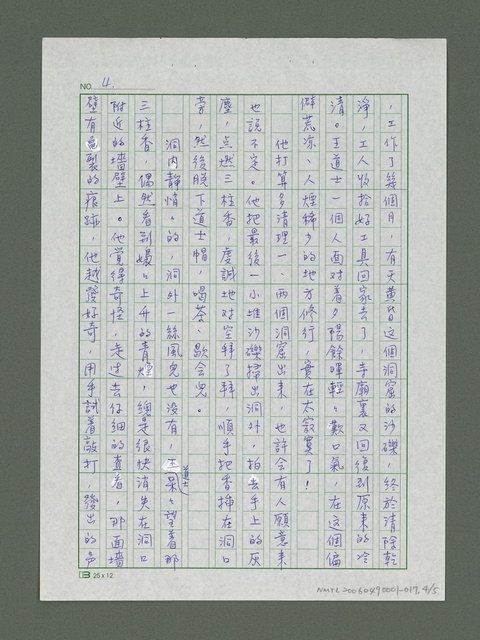 NO. 4.
，工作了幾個月，有天黃昏這個洞窟的沙礫，終於清除乾
淨，工人收拾好工具回家去了，寺廟裏又回復到原來的冷
清。王道士一個人面對着夕陽餘暉輕輕歎口氣，在這個偏
僻荒凉、人煙稀少的地方修行，實在太寂寞了！
他打算多清理一、兩個洞窟出來，也許會有人願意來
也說不定。他把最後一小堆沙礫掃出洞外，拍去手上的灰
塵，点燃三柱香，虔誠地對空拜了拜，順手把香插在洞口
旁，然後脱下道士帽，喝茶、歇會兒。
洞內靜悄々的，洞外一絲風兒也沒有，王道士呆々望着那
三柱香，偶然看到嬝々上升的青煙，總是很快消失在洞口
附近的墻壁上。他覺得奇怪，走過去仔細的查看，那面墻
壁有龜裂的痕跡，他越發好奇，用手試着敲打，發出的声
25 x 12
NMTL20060490001-017, 4/5